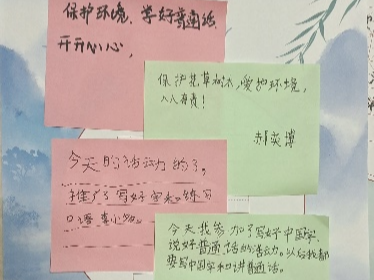 保护环境、学好普通话
开开心心,
保护花草树木,爱护环境,
人人有责!
郝奕博
今天的活动的了,
推广了写好字和练习
口语
今天我参加了写好中国字,
说好普通话的活动。以后我都
要写中国字和讲普通话。